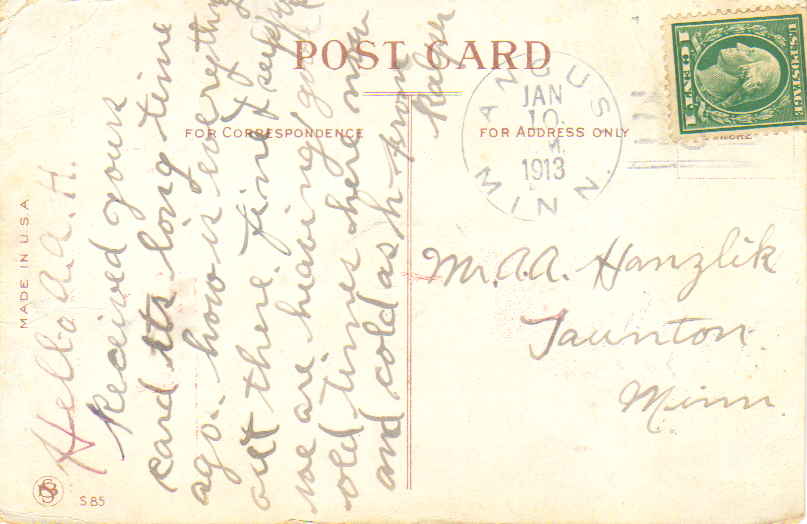 POST CARD
FOR CORRESPONDENCE
FOR ADDRESS ONLY
MADE IN U.S.A.
S 85
ANGUS
MINN.
JAN
10
M.
1913
U.S. POSTAGE
1 CENT 1
Hello A.A.H.
Received yours
card its long time
ago. how is everything
out there. fine I
we are heaving good
old times here now
and cold as h from
Mr. A.A. Hanzlik
Taunton.
Minn.